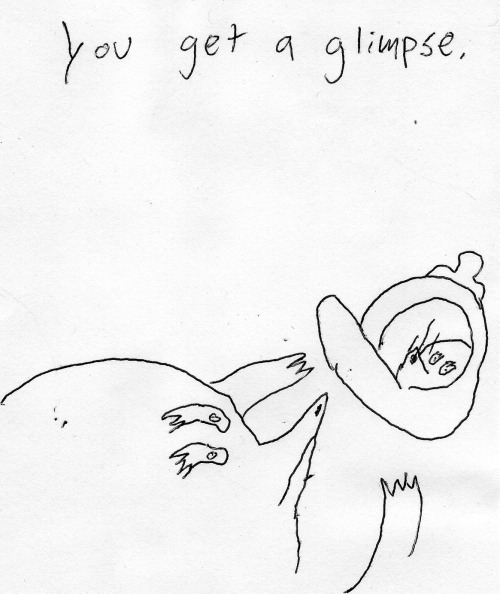 You get a glimpse.